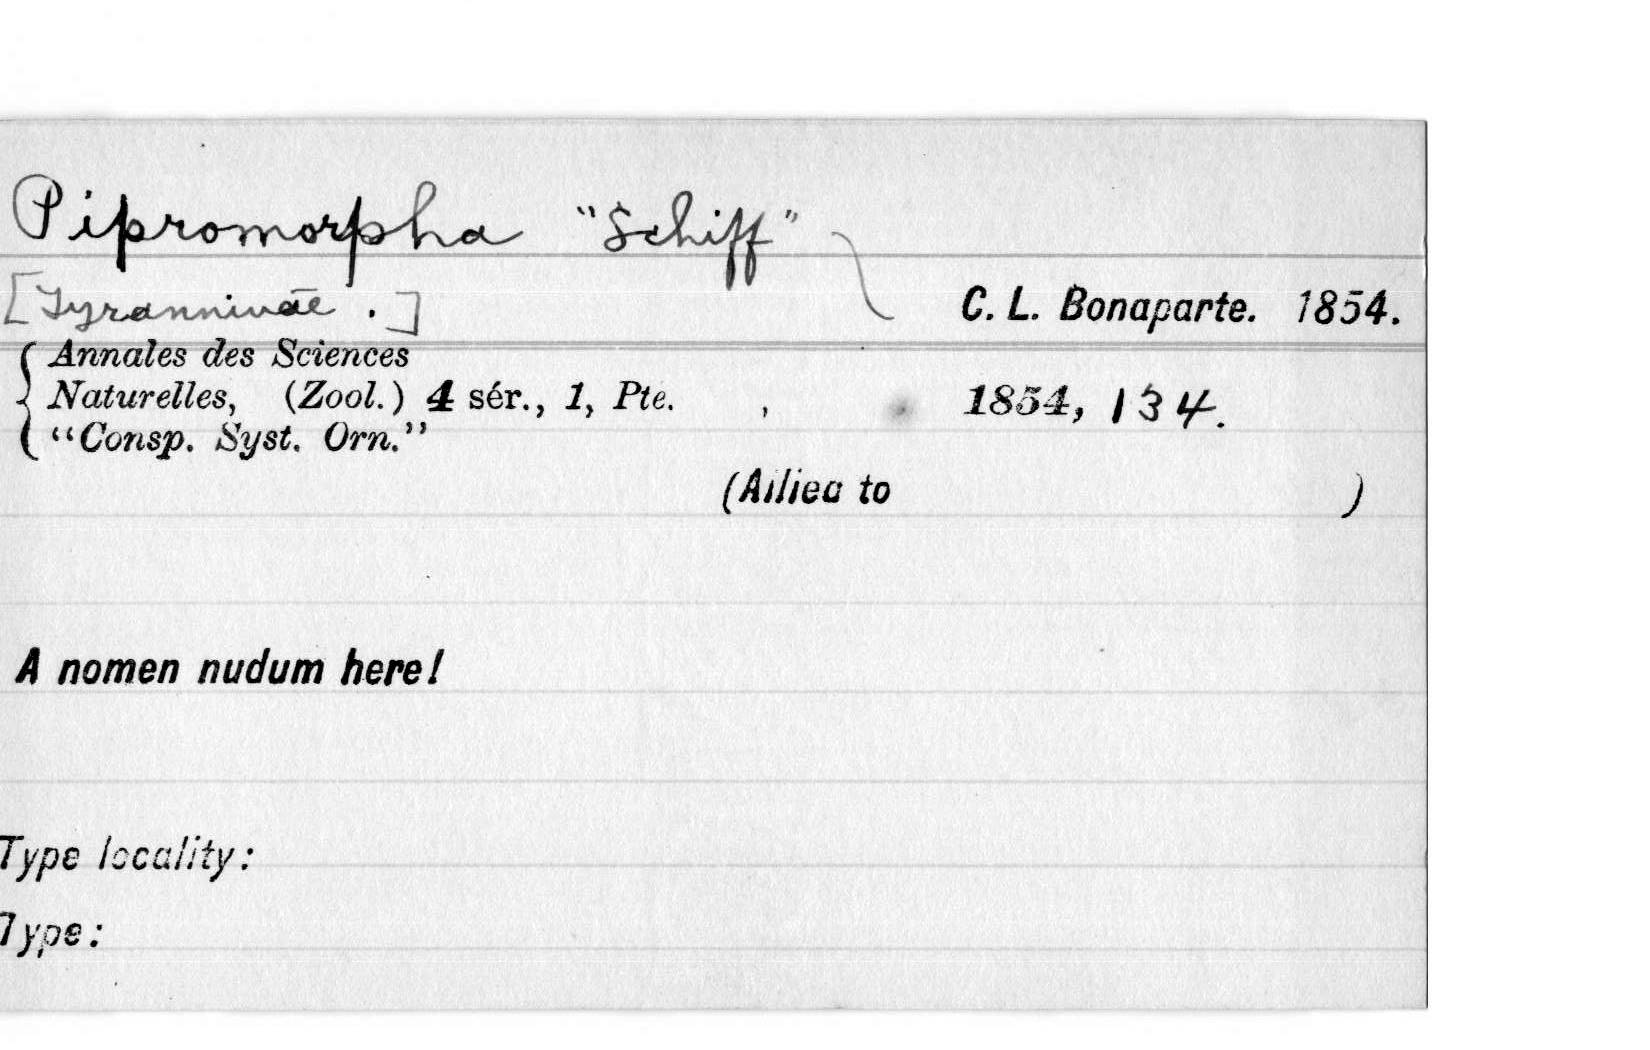 Pipromorpha "Schiff"
[Tyranninae.] C. L. Bonaparte. 1854.
Annales des Sciences
Naturelles, (Zool.) 4 sér., 1, Pte. , 1854, 134.
"Consp. Syst. Orn."
(Allied to )
A nomen nudum here!
Type locality:
Type: